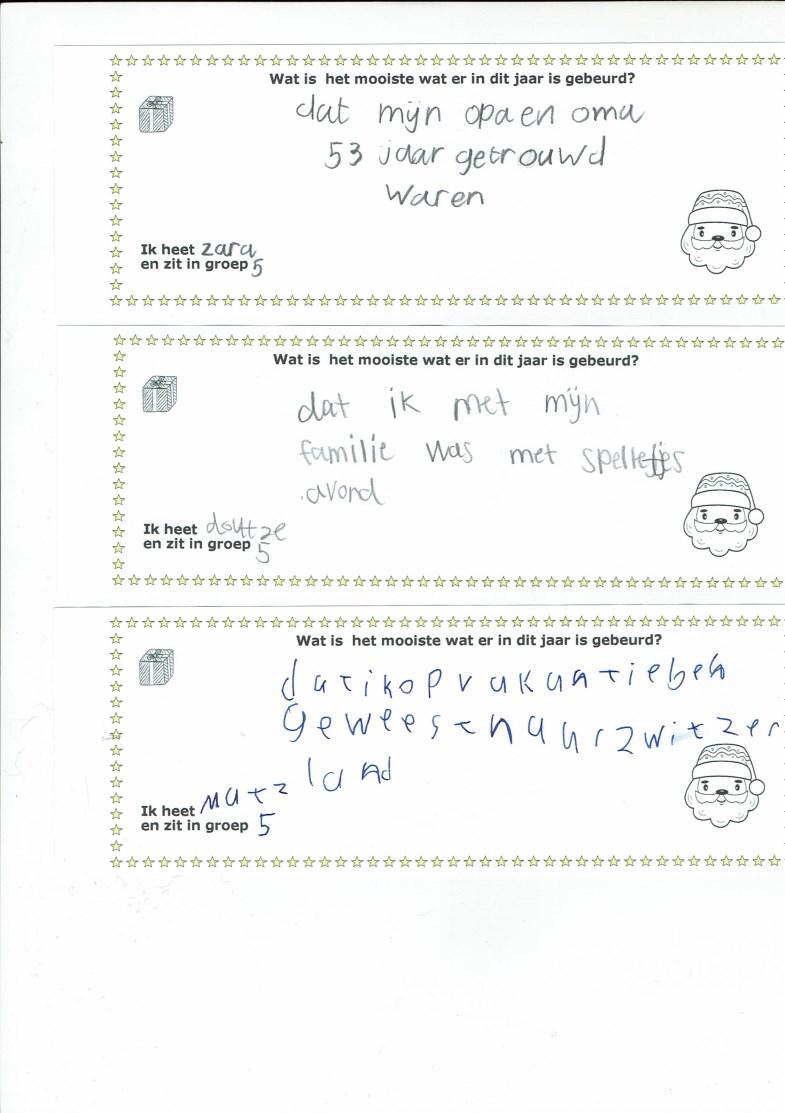 Wat is het mooiste wat er in dit jaar is gebeurd?
dat mijn opa en oma
53 jaar getrouwd
waren
Ik heet zara
en zit in groep 5
Wat is het mooiste wat er in dit jaar is gebeurd?
dat ik met mijn
familie was met spelletjes
avond
Ik heet
en zit in groep 5
Wat is het mooiste wat er in dit jaar is gebeurd?
dat ik op vakantie ben
geweest naar zwitzer
land
Ik heet Matz
en zit in groep 5